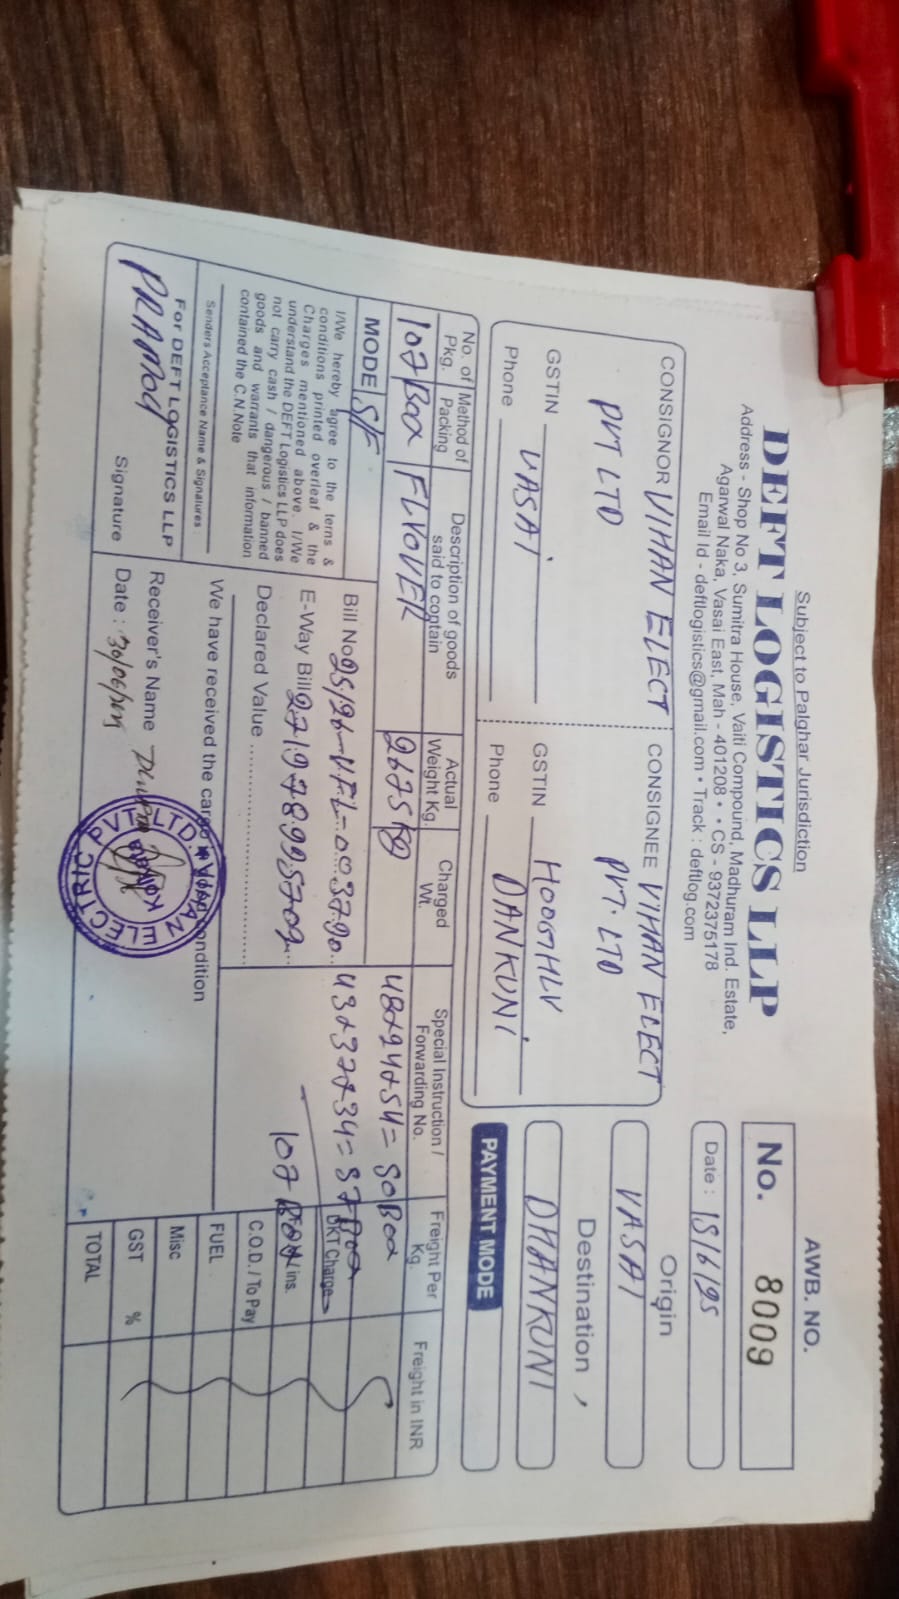 Subject to Palghar Jurisdiction
DEFT LOGISTICS LLP
Address - Shop No 3, Sumitra House, Vaiti Compound, Madhuram Ind. Estate,
Agarwal Naka, Vasai East, Mah - 401208 • • CS - 9372375178
Email Id - deftlogistics@gmail.com • Track : deftlog.com
AWB. NO.
No. 8009
Date :
CONSIGNOR VIHAN ELECT
PVT LTD
GSTIN
VASAI
Phone
CONSIGNEE VIHAN ELECT
PVT. LTD
GSTIN
DANKUNI
Phone
Origin
VASAI
Destination
DHANKUNI
PAYMENT MODE
No. of Pkg.
Method of Packing
Description of goods said to contain
Actual Weight Kg.
Charged Wt.
Special Instruction / Forwarding No.
Freight Per Kg.
Freight in INR
107 Box
2675 kg
48x24x54= 50 Box
43x37x34= 57 Box
107 Box
MODE S/F
Bill No 25/26-VFL-003790
E-Way Bill
Declared Value
I/We hereby agree to the terns &
conditions printed overleaf & the
Charges mentioned above. I/We
understand the DEFT Logistics LLP does
not carry cash / dangerous / banned
goods and warrants that information
contained the C.N.Note
Senders Acceptance Name & Signatures :
For DEFT LOGISTICS LLP
PRAMOD
Signature
We have received the cargo in good condition
Receiver's Name
Date :
VIHAN ELECTRIC PVT. LTD.
Kolkata
DKT Charge
ins.
C.O.D. / To Pay
FUEL
Misc
GST %
TOTAL